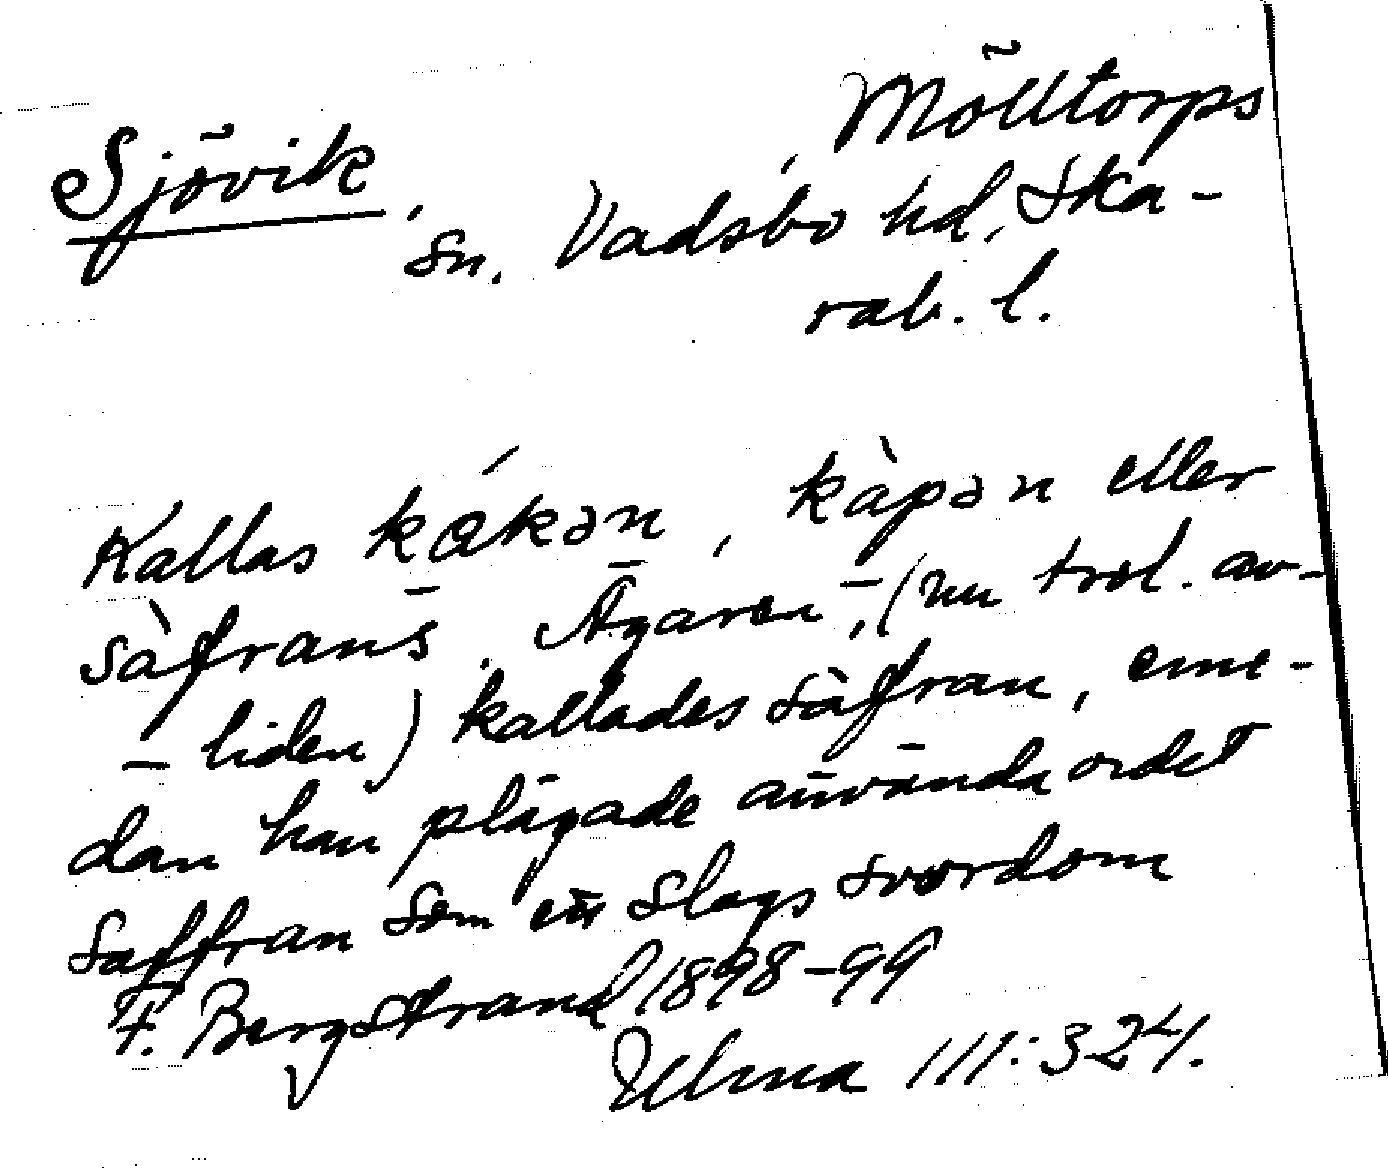 Sjövik, Mölltorps
sn. Vadsbo hd, Ska-
rab. l.
Kallas kákən, kàpən eller
sàfrans. Ägaren, (nu trol. av-
- liden) kallades sàfran, eme-
dan han plägade använda ordet
saffran som en slags svordom
F. Bergstrand 1898-99
Ulma 111:324.